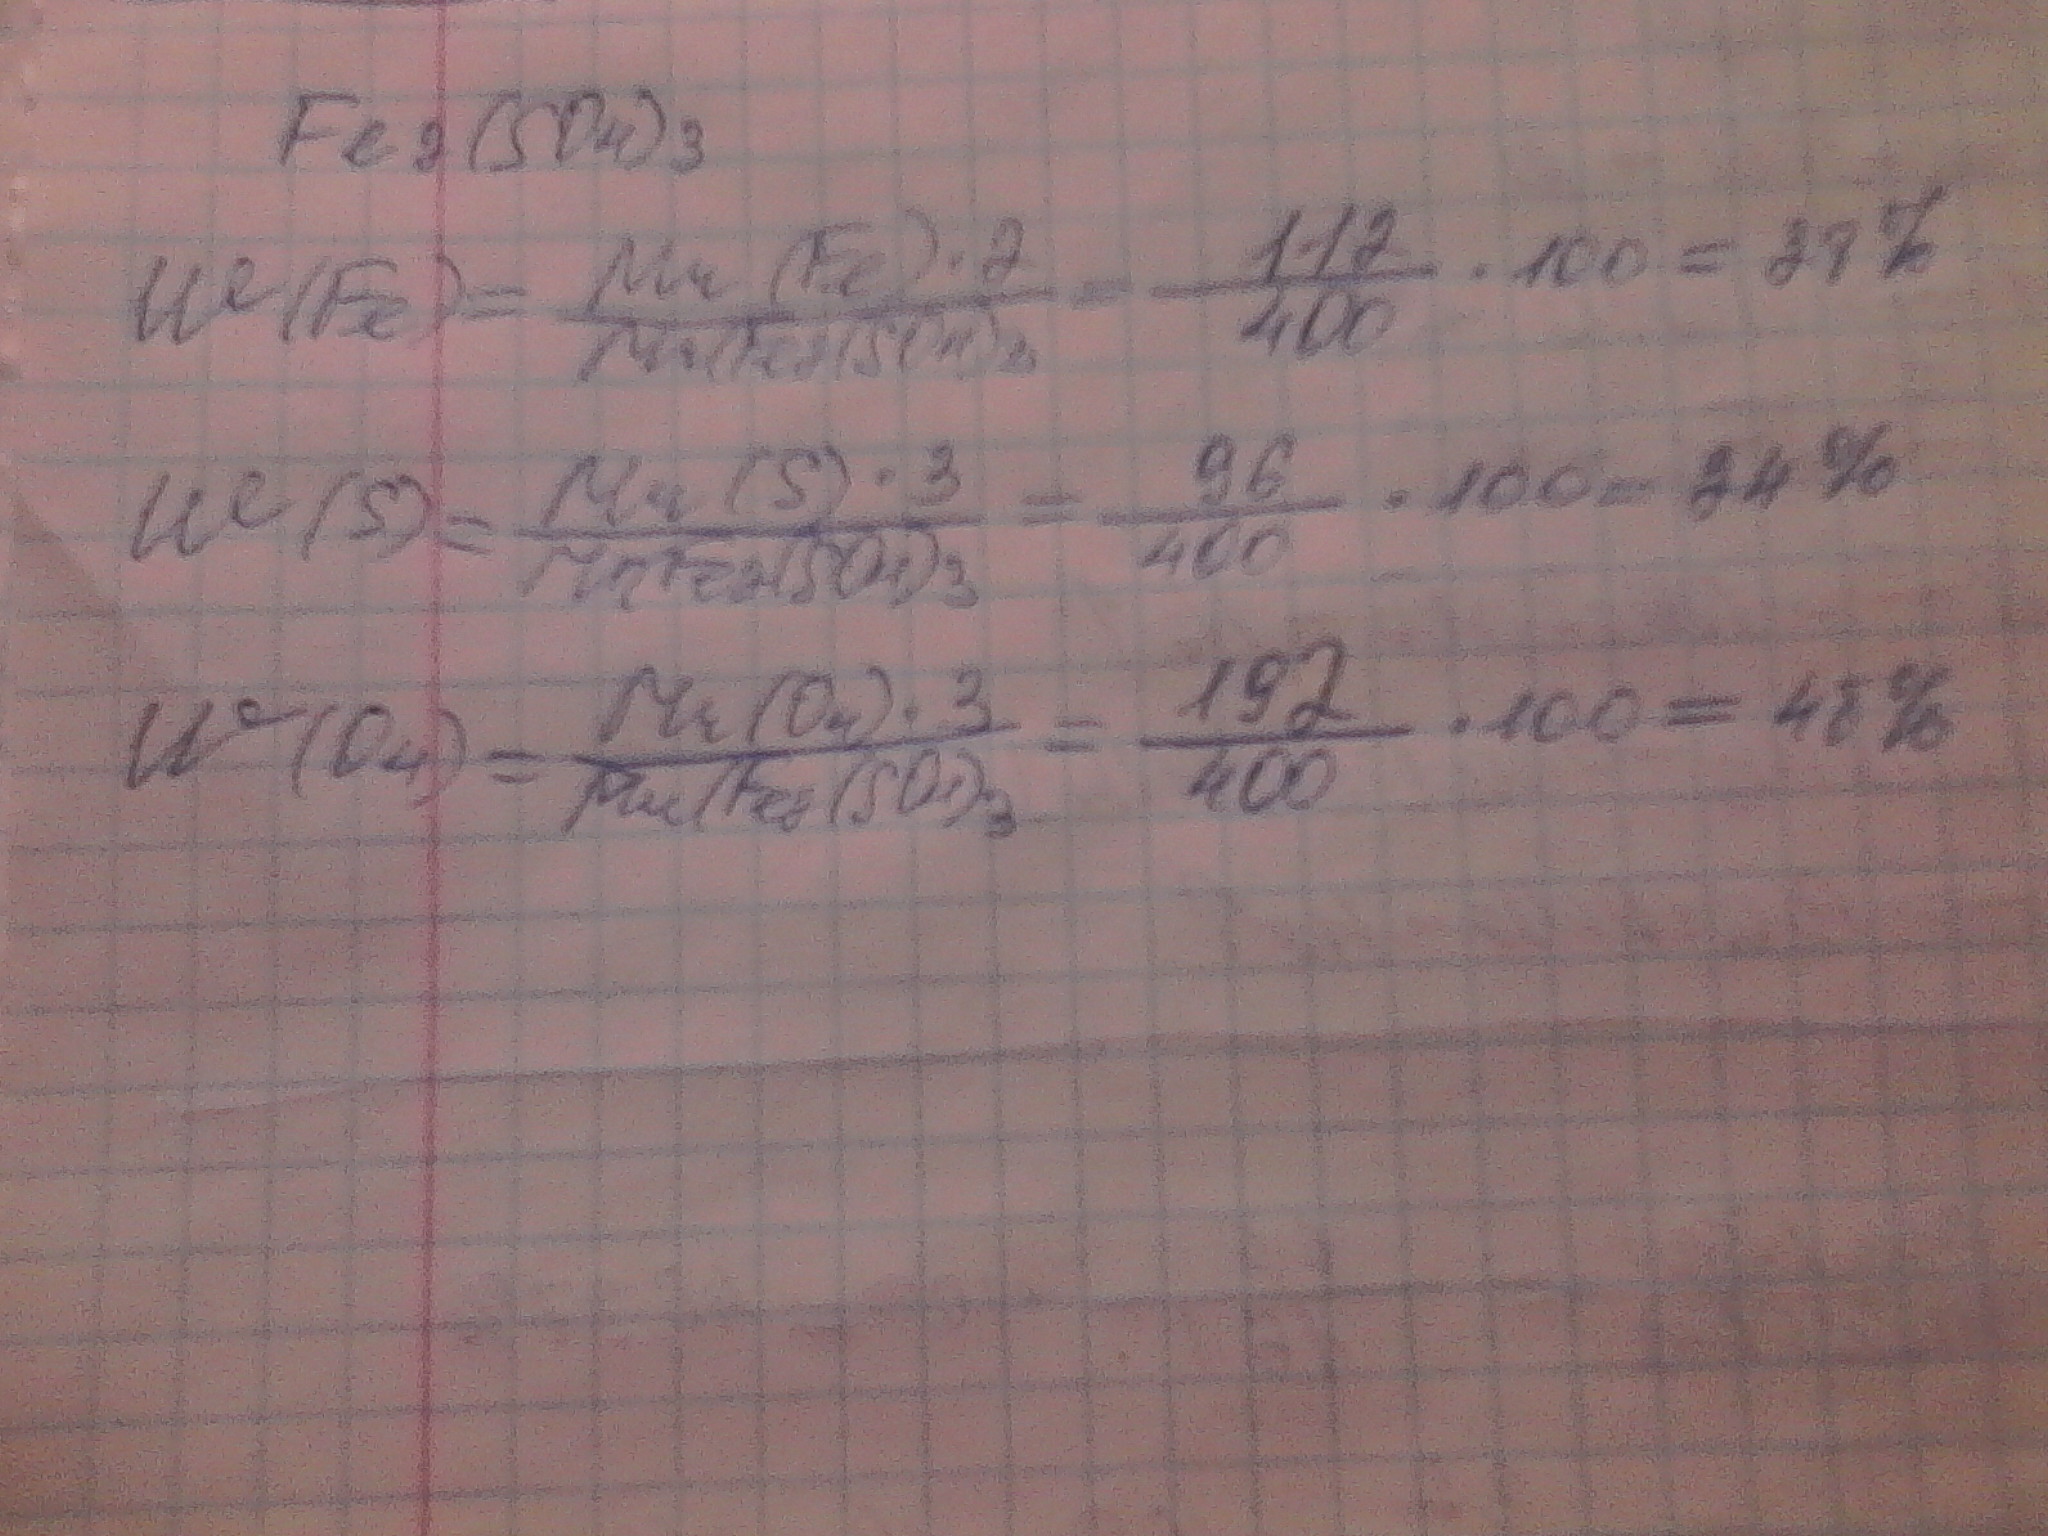 Fe2(SO4)3
We(Fe) = Mr(Fe)·2 / Mr(Fe2(SO4)3 = 112/400 · 100 = 28%
We(S) = Mr(S)·3 / Mr(Fe2(SO4)3 = 96/400 · 100 = 24%
We(O4) = Mr(O4)·3 / Mr(Fe2(SO4)3 = 192/400 · 100 = 48%